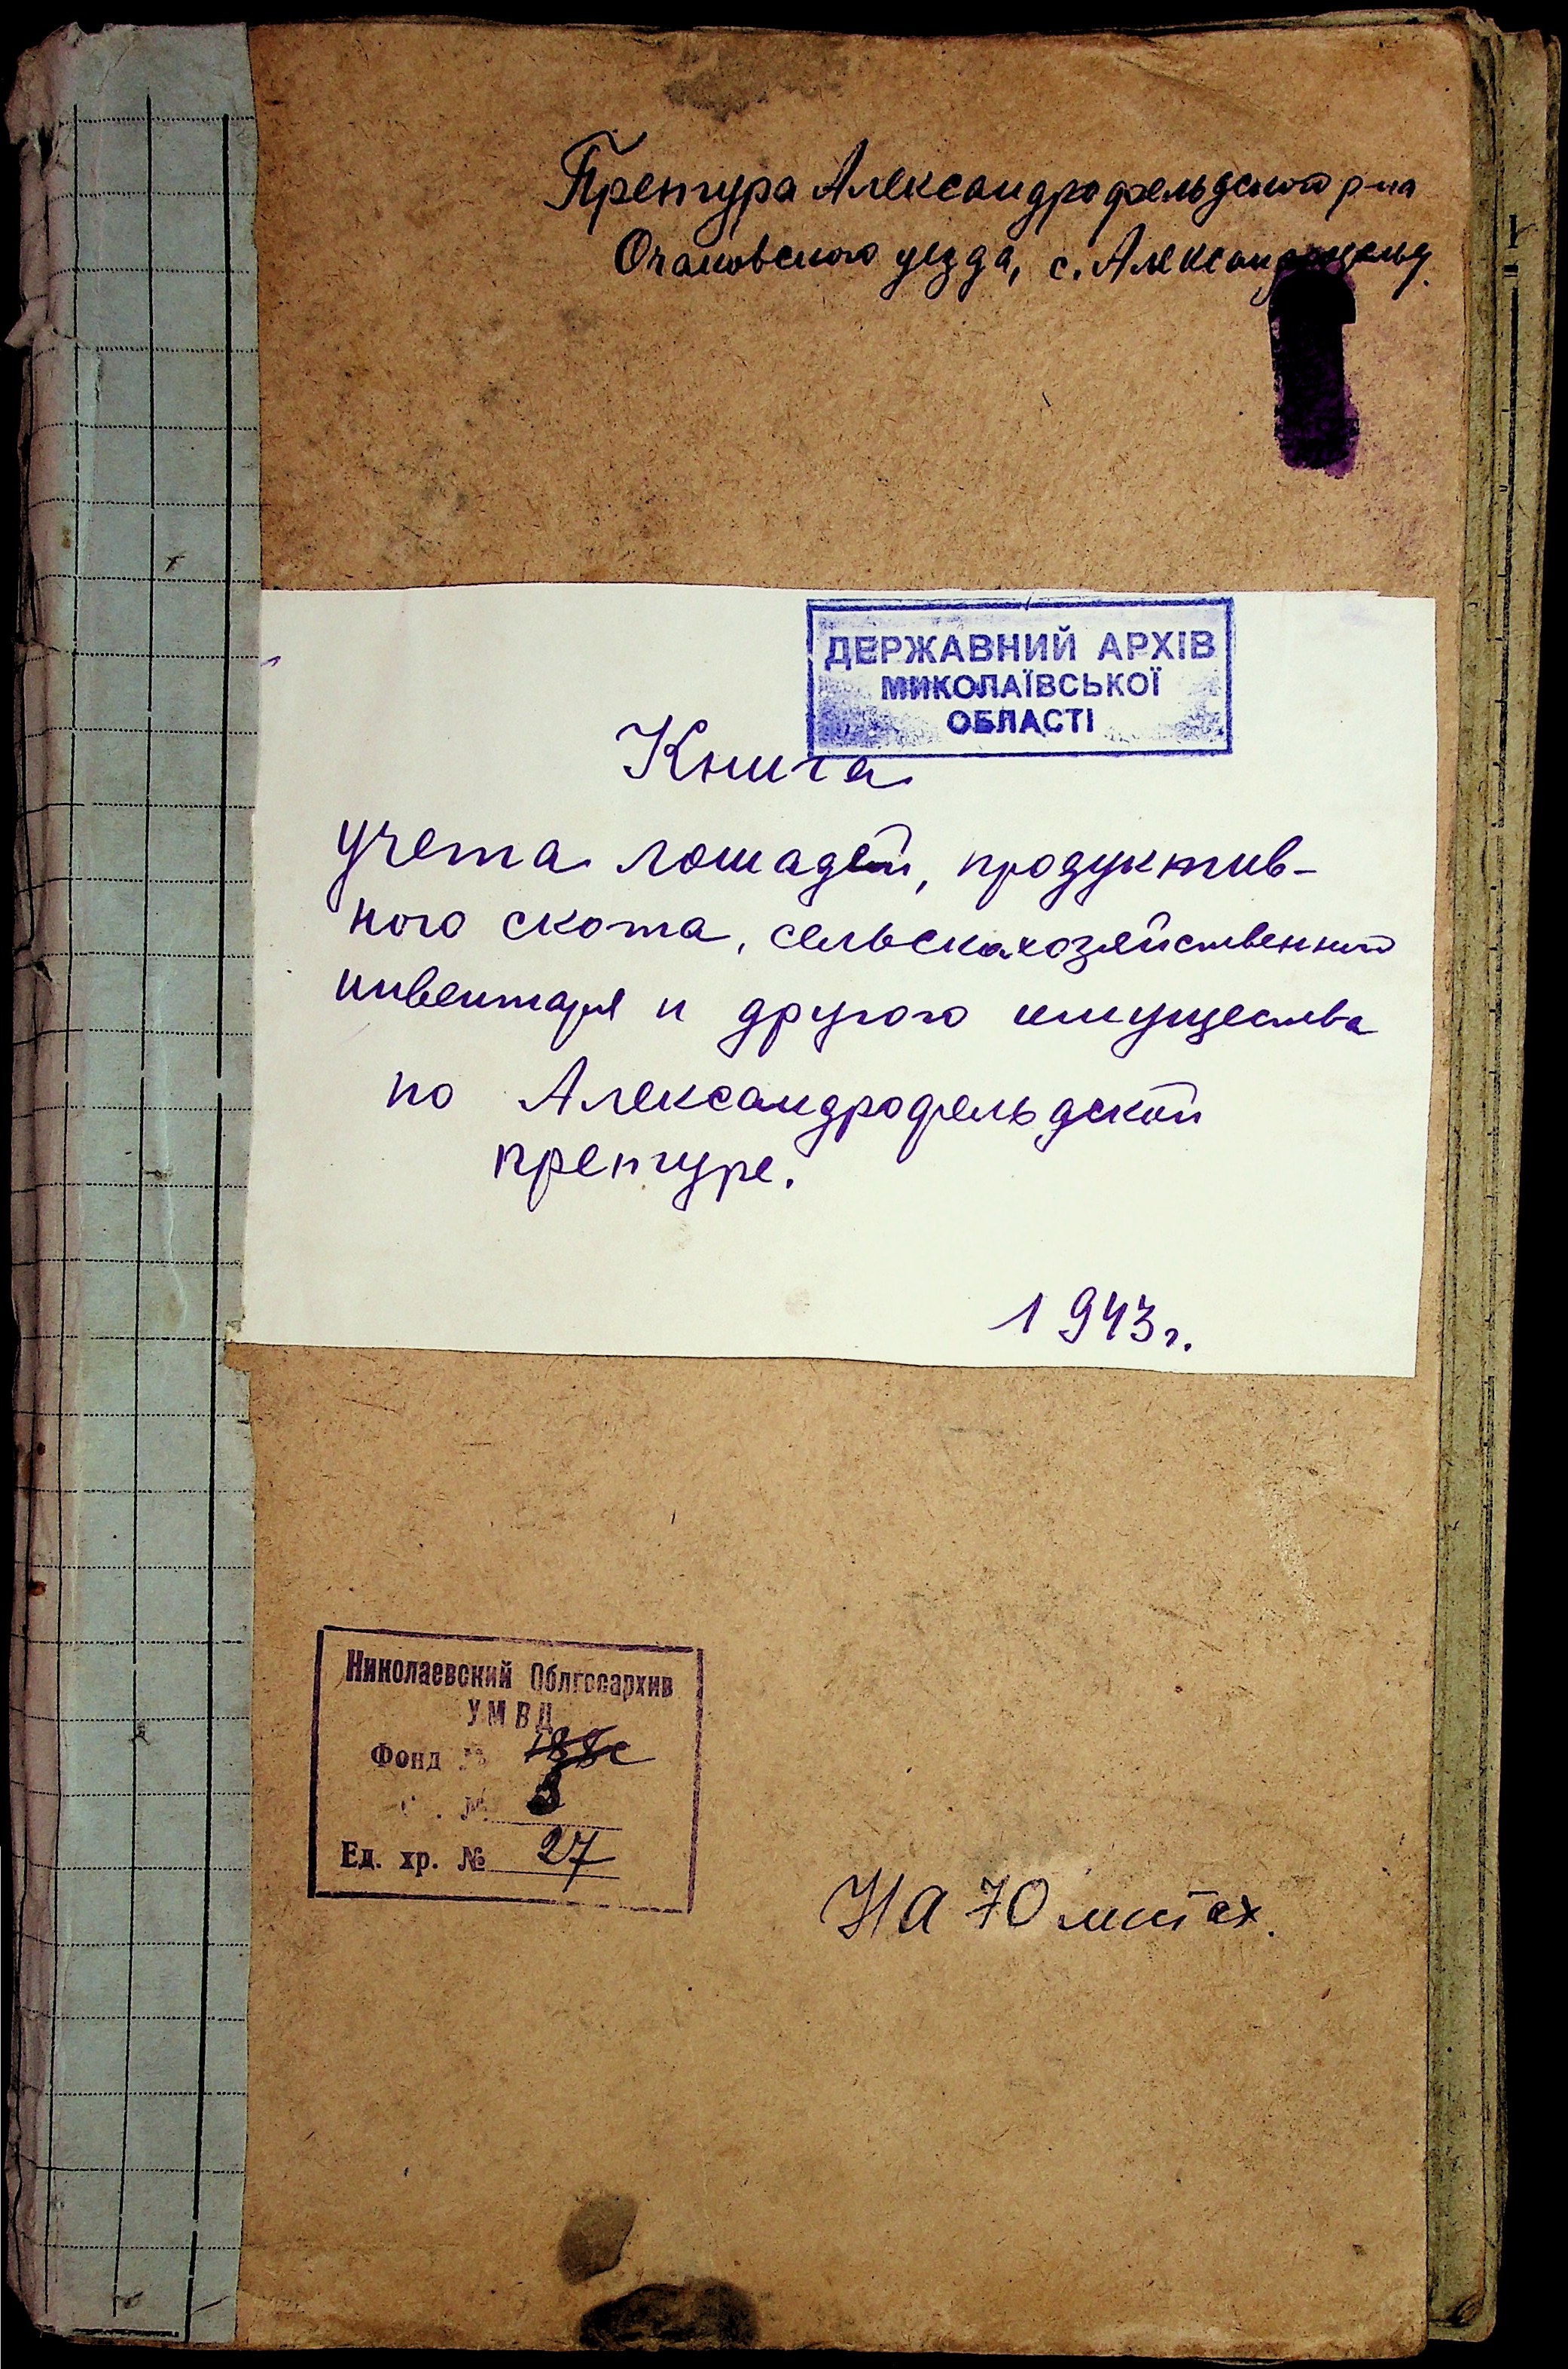 Претура Александрофельдского р-на
Очаковского уезда, с. Александрфельд.
ДЕРЖАВНИЙ АРХІВ
МИКОЛАЇВСЬКОЇ
ОБЛАСТІ
Книга
учета лошадей, продуктив-
ного скота, сельскохозяйственного
инвентаря и другого имущества
по Александрофельдской
претуре.
1943г.
Николаевский Облгосархив
УМВД
Фонд №
№
Ед. хр. № 27
На 70 листах.